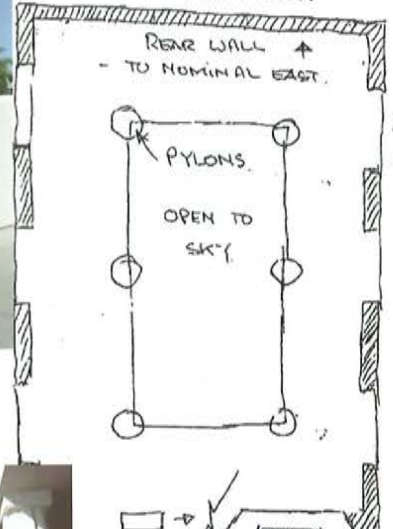 REAR WALL
- TO NOMINAL EAST.
PYLONS.
OPEN TO
SKY.